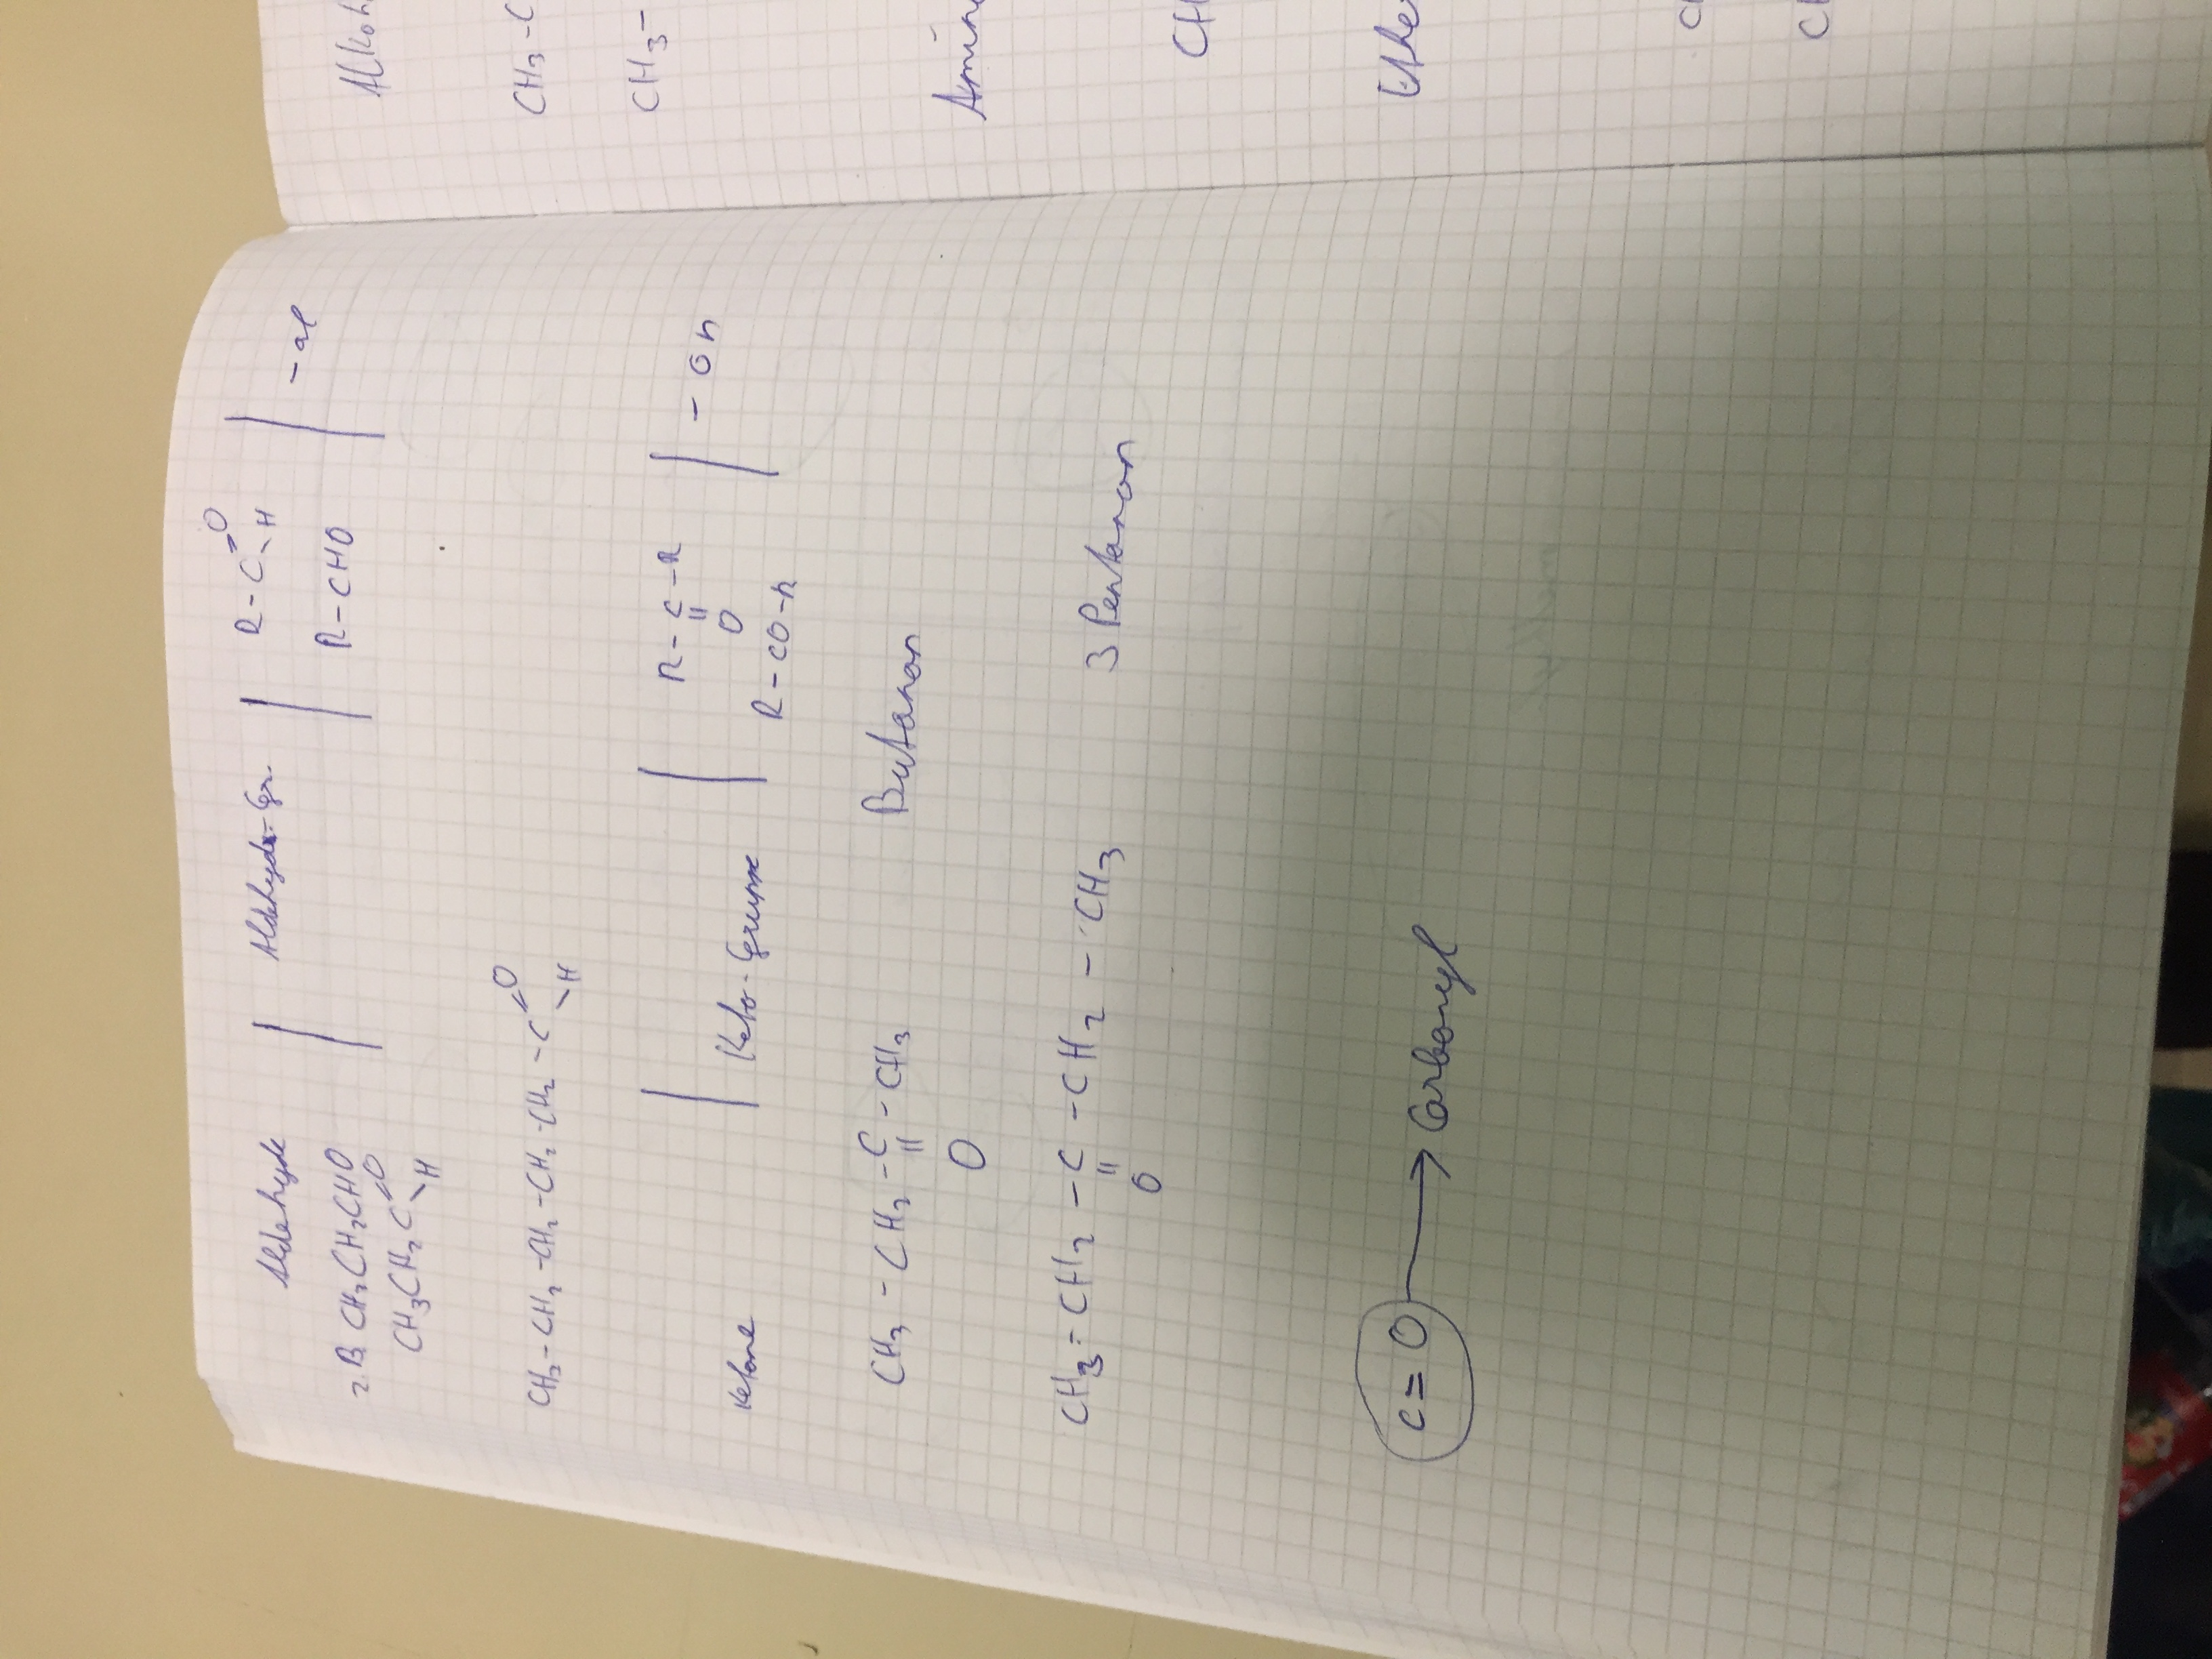 Aldehyde | Aldehyd-Gr. | R-C=O -H | -al
z.B. CH3CH2CHO R-CHO
CH3CH2C=O -H
CH3-CH2-CH2-CH2-CH2-C=O -H
Ketone | Keto-Gruppe | R-C-R | -on
=
O
R-CO-R
CH3-CH2-C-CH3 Butanon
=
O
CH3-CH2-C-CH2-CH3 3 Pentanon
=
O
C=O → Carbonyl
Alkoh
CH3-C
CH3-
Amin
CH
Ethe
C
C